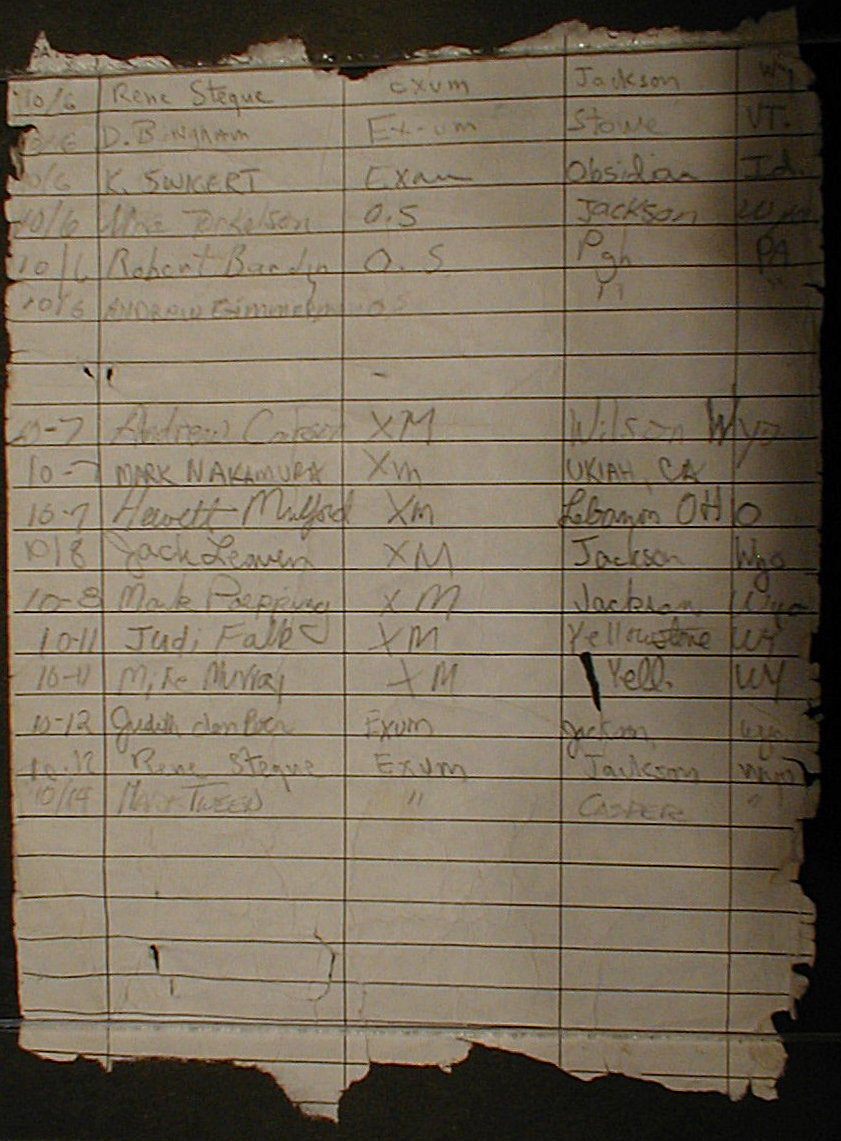 10/6 Rene Steque Exum Jackson Wy
10/6 D. Bingham Ex-um Stowe VT.
10/6 K. SWIGERT Exum Obsidian Id.
10/6 Mike Torkelson O.S Jackson Wyo
10/6 Robert O. S. Pgh PA
10/6 ANDREW O.S " "
10-7 Andrew Carson XM Wilson Wyo
10-7 MARK NAKAMURA Xm UKIAH, CA
10-7 Hewett Mulford Xm Lebanon OHIO
10/8 Jack XM Jackson Wyo
10-8 Mark Poepping XM Jackson Wyo
10-11 Judi Falk XM Yellowstone WY
10-11 Mike Murray XM Yell. WY
10-12 Judith Exum Jackson, Wyo
10-12 Rene Steque Exum Jackson Wyo
10/14 TWEED " CASPER "